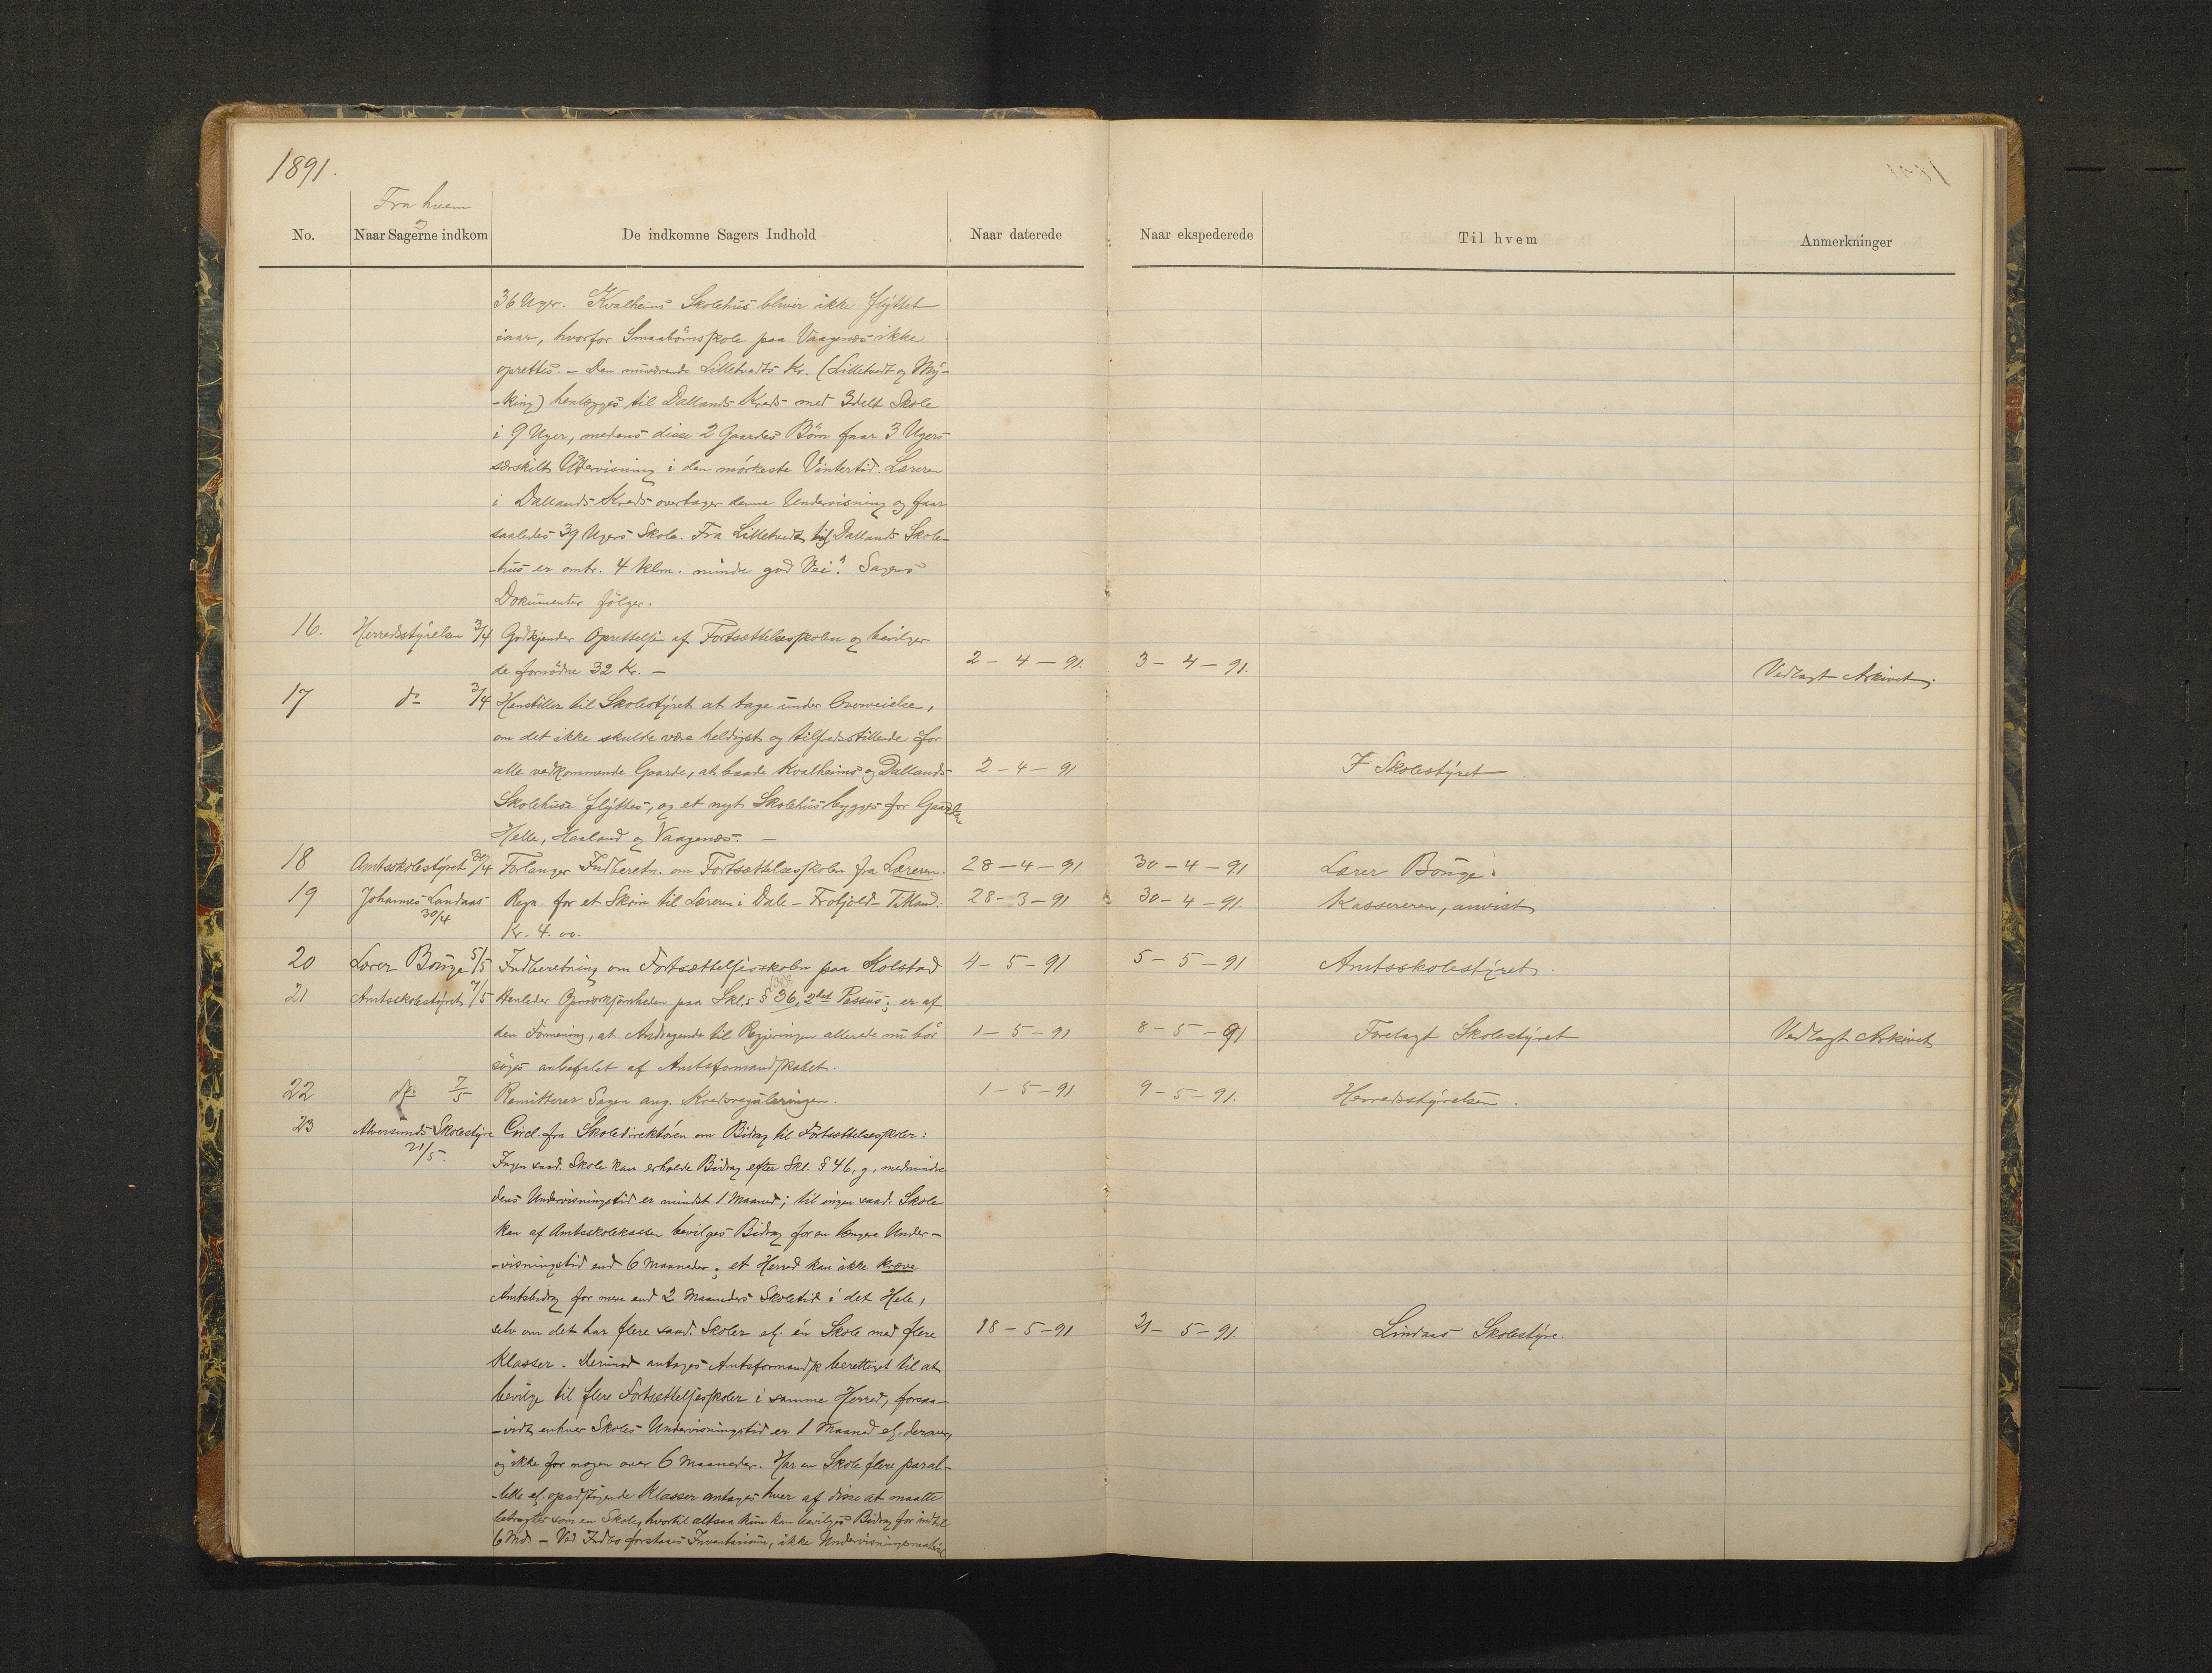 1891.
Fra hvem
No. Naar Sagerne indkom De indkomne Sagers Indhold Naar daterede Naar ekspederede Til hvem Anmerkninger
36 Uger. Kvalheims Skolehus bliver ikke flyttet
iaar, hvorfor Smaabörnsskole paa Vaagenæs ikke
oprettes. – Den nuværende Lilletvedts Kr. (Lilletvedt og My-
-king) henlægges til Dallands Kreds med 3delt Skole
i 9 Uger, medens disse 2 Gaardes Börn faar 3 Ugers
særskilt Undervisning i den mörkeste Vintertid. Læreren
i Dallands Kreds overtager denne Undervisning og faar
saaledes 39 Ugers Skole. Fra Lilletvedt til Dallands Skole-
-hus er omtr. 4 Klm. mindre god Vei". Sagens
Dokumenter fölger.
16. Herredsstyrelsen 3/4 Godkjender Oprettelsen af Fortsættelsesskolen og bevilger
de fornödne 32 Kr. – 2 – 4 – 91. 3 – 4 – 91. Vedlagt Arkivet.
17 do 3/4 Henstiller til Skolestyret at tage under Overveielse,
om det ikke skulde være heldigst og tilfredsstillende for
alle vedkommende Gaarde, at baade Kvalheims og Dallands 2 – 4 – 91 F Skolestyret
Skolehuse flyttes, og et nyt Skolehus bygges for Gaardene
Helle, Haaland og Vaagenæs. –
18 Amtsskolestyret 30/4 Forlanger Indberetn. om Fortsættelsesskolen fra Læreren. 28 – 4 – 91 30 – 4 – 91 Lærer Bonge.
19 Johannes Landaas Regn. for et Skrin til Læreren i Dale – Titland. 28 – 3 – 91 30 – 4 – 91. Kassereren, anvist
30/4 Kr. 4.00.
20 Lærer Bonge 5/5 Indberetning om Fortsættelsesskolen paa Kolstad 4 – 5 – 91 5 – 5 – 91 Amtsskolestyret.
21 Amtsskolestyret 7/5 Henleder Opmærksomheden paa Skl.s § 36, 2det Passus; er af
den Formening, at Andragende til Regjeringen allerede nu bör 1 – 5 – 91 8 – 5 – 91 Forelagt Skolestyret Vedlagt Arkivet
söges anbefalet af Amtsformandskabet.
22 do 7/5 Remitterer Sagen ang. Kredsreguleringen. 1 – 5 – 91 9 – 5 – 91. Herredsstyrelsen.
23 Alversunds Skolestyre Circl. fra Skoledirektören om Bidrag til Fortsættelsesskoler:
21/5. Ingen saad. Skole kan erholde Bidrag efter Skl. § 46, g, medmindre
dens Undervisningstid er mindst 1 Maaned; til ingen saad. Skole
kan af Amtsskolekassen bevilges Bidrag for en længere Under-
-visningstid end 6 Maaneder; et Herred kan ikke kræve
Amtsbidrag for mere end 2 Maaneders Skoletid i det Hele,
selv om det har flere saad. Skoler el. én Skole med flere 18 – 5 – 91 21 – 5 – 91. Lindaas Skolestyre.
Klasser. Derimod antages Amtsformandsk. berettiget til at
bevilge til flere Fortsættelsesskoler i samme Herred, forsaa-
-vidt enhver Skoles Undervisningstid er 1 Maaned el. derover,
og ikke for nogen over 6 Maaneder. Har en Skole flere paral-
-lelle el. opadstigende Klasser antages hver af disse at maatte
betragtes som en Skole, hvortil altsaa kun kan bevilges Bidrag for indtil
6 Mdr. – Ved Indbo forstaaes Inventarium, ikke Undervisningsmateriel